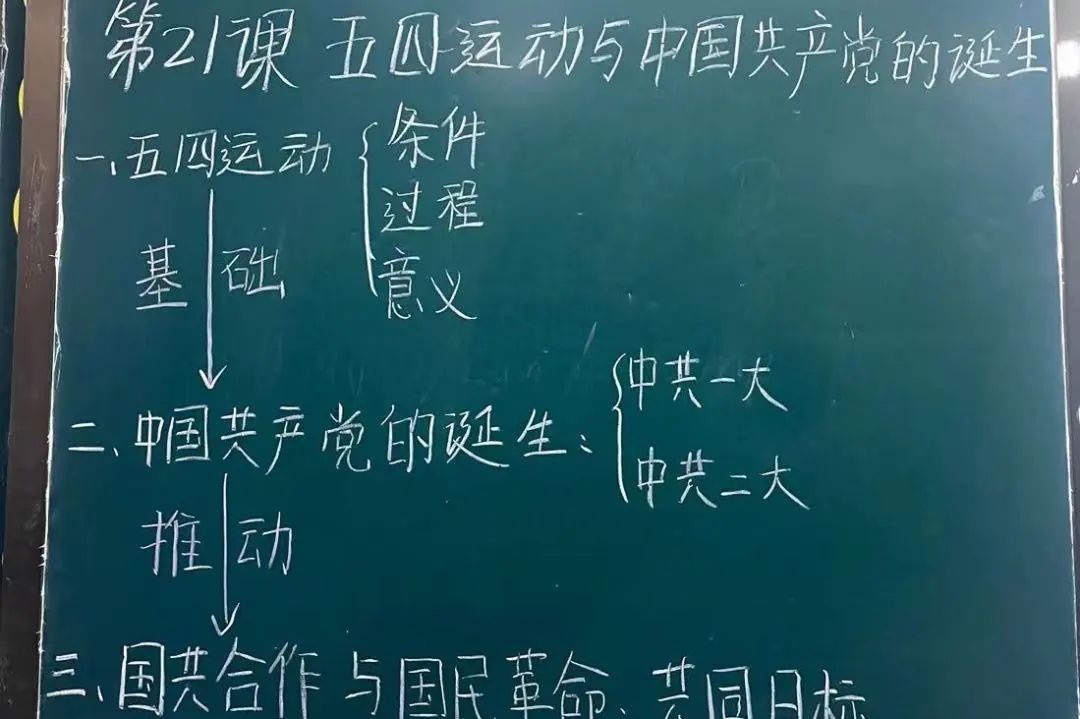 第21课 五四运动与中国共产党的诞生
一、五四运动
条件
过程
意义
基础
二、中国共产党的诞生：
中共一大
中共二大
推动
三、国共合作与国民革命、共同目标